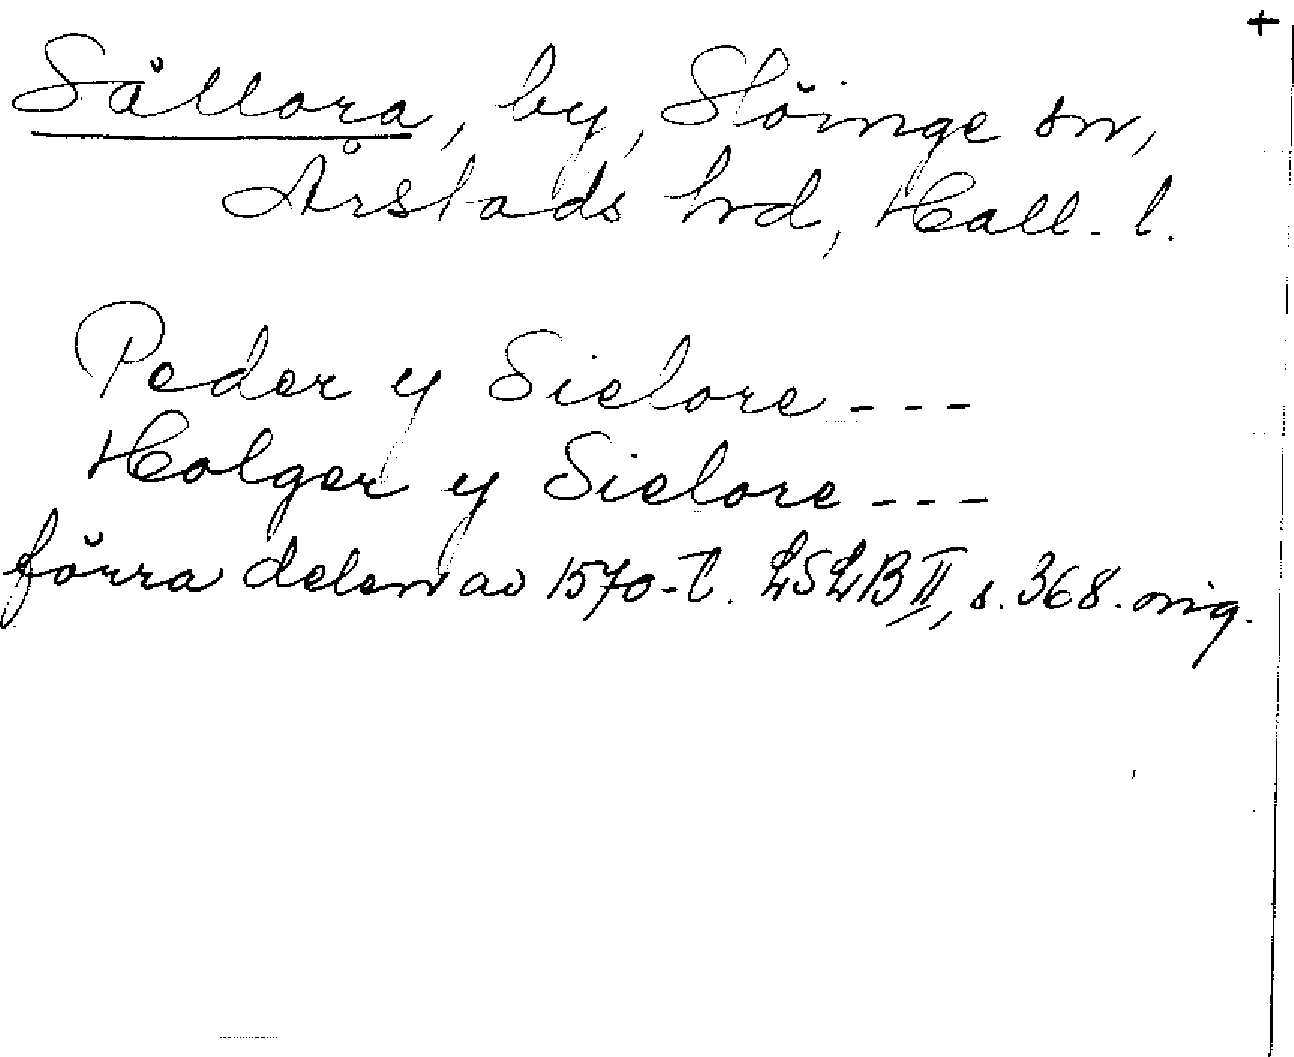 +
Sällora, by, Slöinge sn,
Årstads hrd, Hall. l.
Peder y Sielore - - -
Holger y Sielore - - -
förra delen av 1570-t. LSLB II, s. 368. orig.